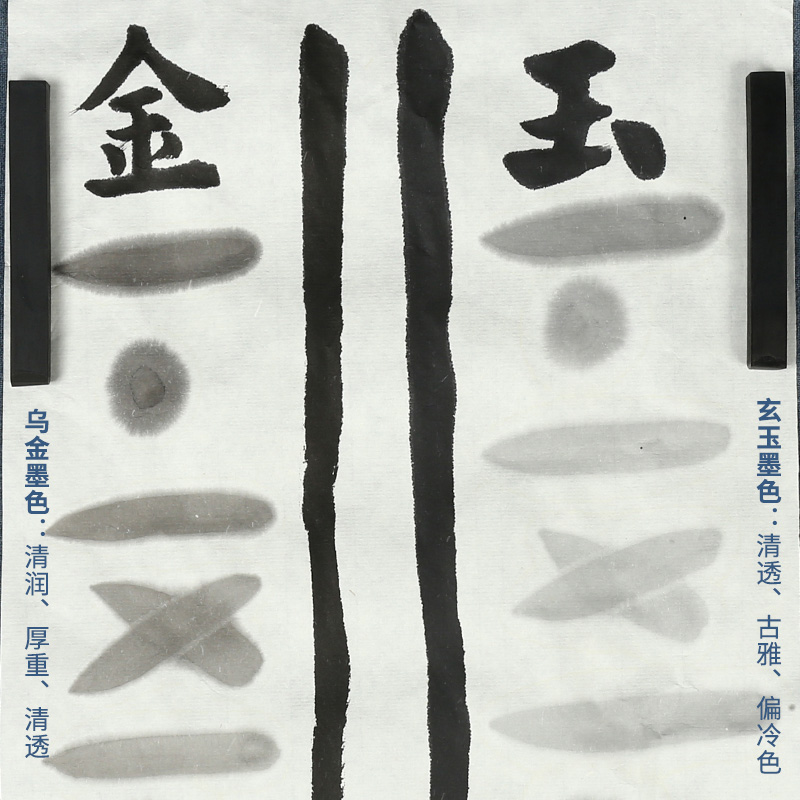 金
玉
乌金墨色：清润、厚重、清透
玄玉墨色：清透、古雅、偏冷色